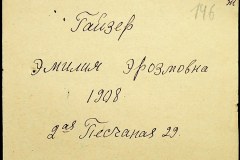 146
Гайзер
Эмилия Эрозмовна
1908
2ая Песчаная 29.